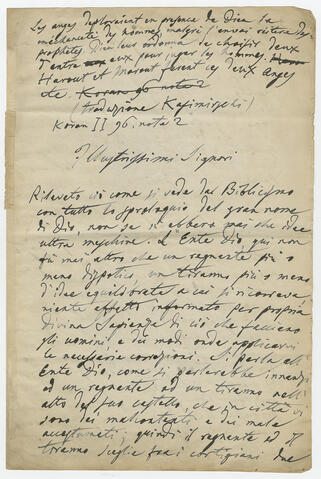 Les anges déploraient en presence de Dieu la
méchanceté des hommes, malgré l'envoi des
prophètes. Dieu leur ordonna de choisir deux
d'entre eux pour juger les hommes.
Harout et Marout furent ces deux anges
etc. Koran 96 nota 2
(traduzione Kasimirschi)
Koran II 96. nota 2
Illustrissimi Signori
Rilevato ciò come si vede dal
con tutto lo sproloquio del gran nome
di Dio, non se n'ebbero mai che idee
ultra meschine. L'Ente Dio qui non
fu mai altro che un regnante più o
meno dispotico, un tiranno più o meno
d'idee equilibrate a cui si ricorreva
niente affatto informato per propria
divina Sapienza di ciò che facciano
gli uomini e dei modi onde applicarvi
le necessarie correzioni. Si parla all'
Ente Dio, come si parlerebbe innanzi
ad un regnante ad un tiranno nell'
alto del suo castello, che in città vi
sono dei malcontenti e dei male
accostumati; quindi il regnante ed il
tiranno sceglie fra i cortigiani due